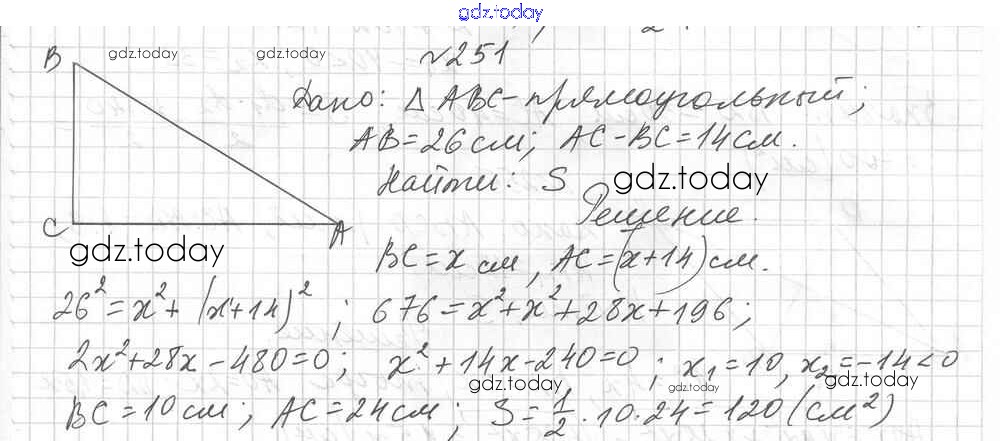 gdz.today
№251
B gdz.today gdz.today gdz.today
Дано: △ABC - прямоугольный;
AB = 26 см; AC - BC = 14 см.
Найти: S gdz.today
Решение.
C A
gdz.today
BC = x см, AC = (x + 14) см.
26² = x² + (x + 14)²; 676 = x² + x² + 28x + 196;
2x² + 28x - 480 = 0; x² + 14x - 240 = 0; x₁ = 10, x₂ = -14 < 0
gdz.today gdz.today gdz.today
BC = 10 см; AC = 24 см; S = 1/2 · 10 · 24 = 120 (см²)